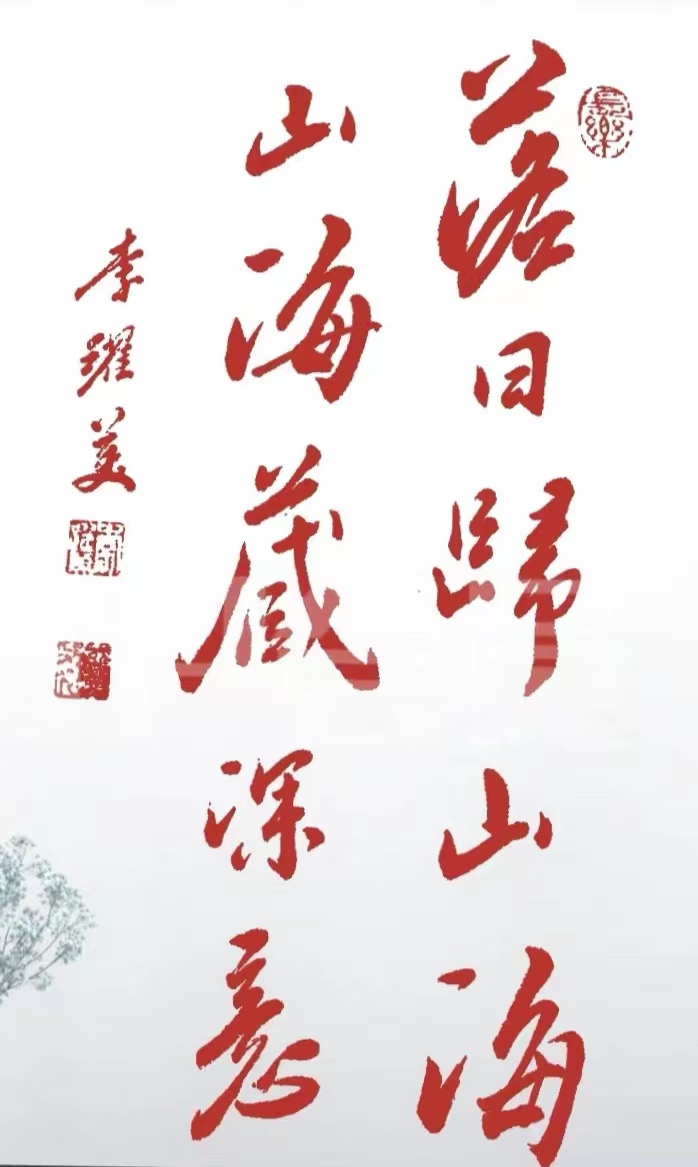 落日歸山海
山海藏深意
李躍美